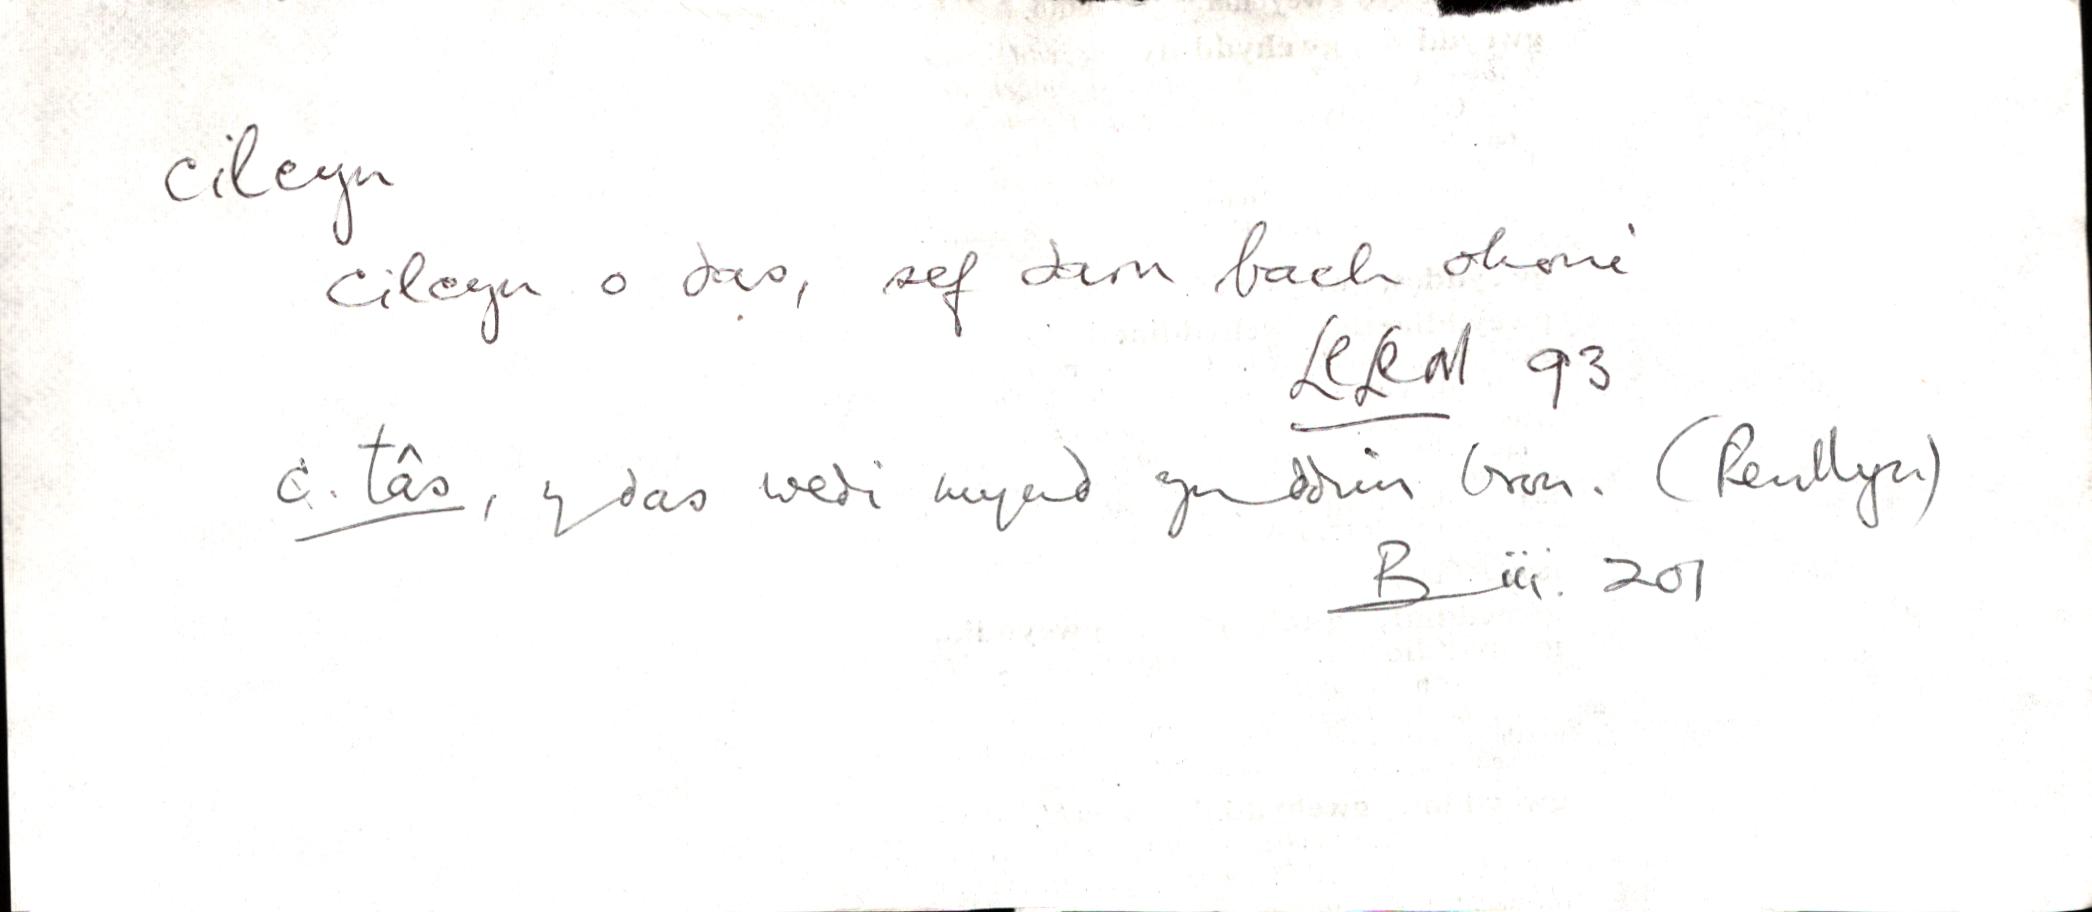 cilcyn
cilcyn o das, sef darn bach ohoni
LLLlM 93
c. tâs, y das wedi myned yn ddim bron. (Penllyn)
B iii. 201